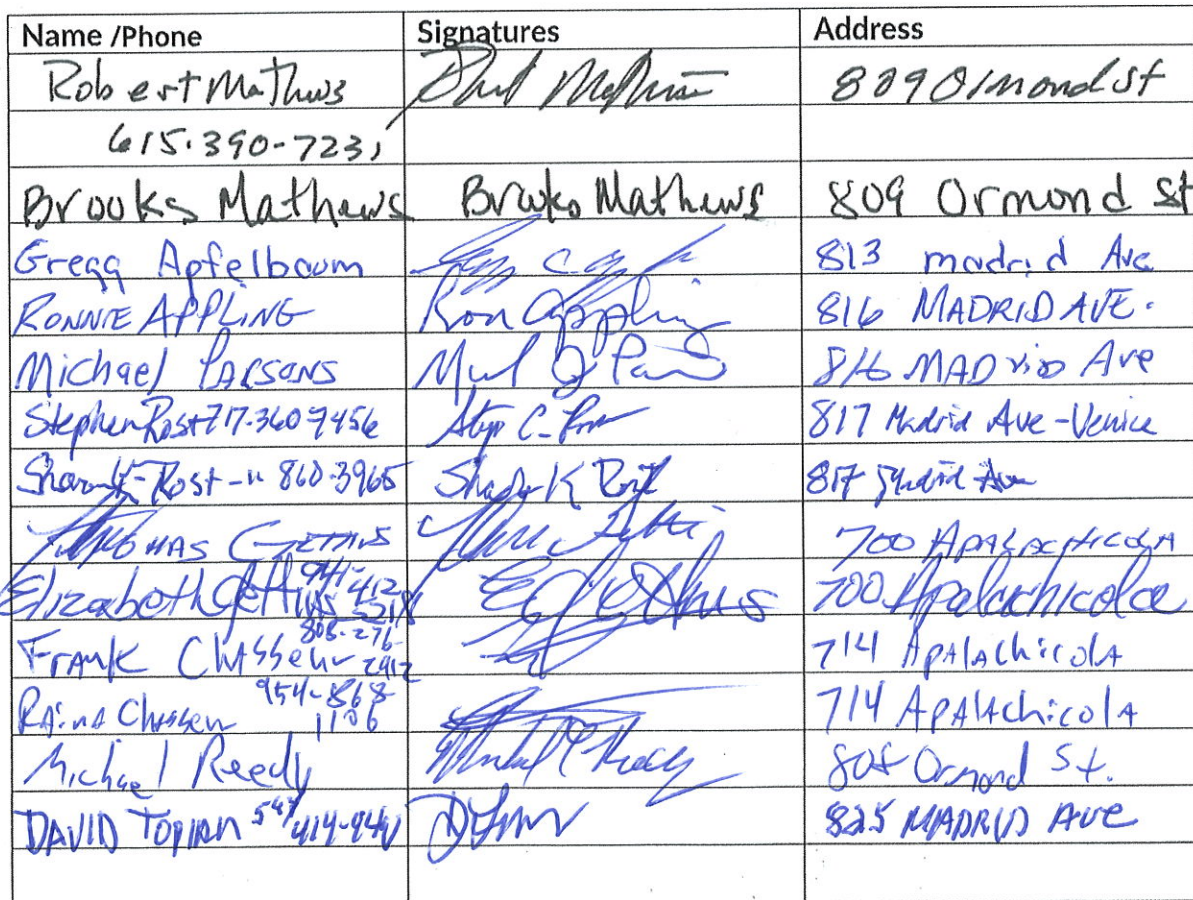 Name /Phone Signatures Address
Robert Mathews 809 Ormond St
615.390-7231
Brooks Mathews Brooks Mathews 809 Ormond St
Gregg Apfelbaum 813 madrid Ave
RONNIE APPLING Ron Appling 816 MADRID AVE.
Michael PARSONS 816 MADrid Ave
Stephen Rost 717-360-7456 817 Madrid Ave-Venice
Rost - 860-3965 Sharon K Rost 817 Madrid Ave
THOMAS GETTINS 700 APALACHICOLA
Elizabeth Gettins 941-412- 700 Apalachicola
FRANK Chasseur 808-276-2912 714 APALAchicolA
RAinA Chasseur 954-868-1106 714 APALAchicolA
Michael Reedy Michael Reedy Ormond St.
DAVID TOPIAN 825 MADRID AVE